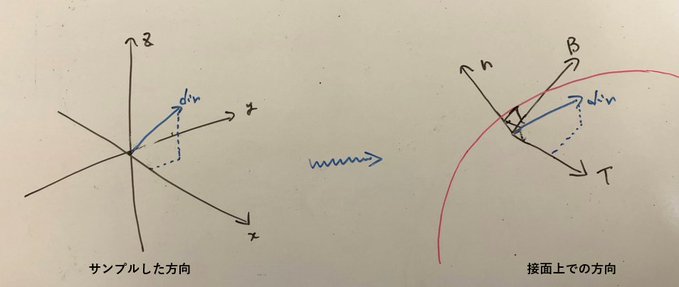 z
dir
y
x
サンプルした方向
n
B
dir
T
接面上での方向